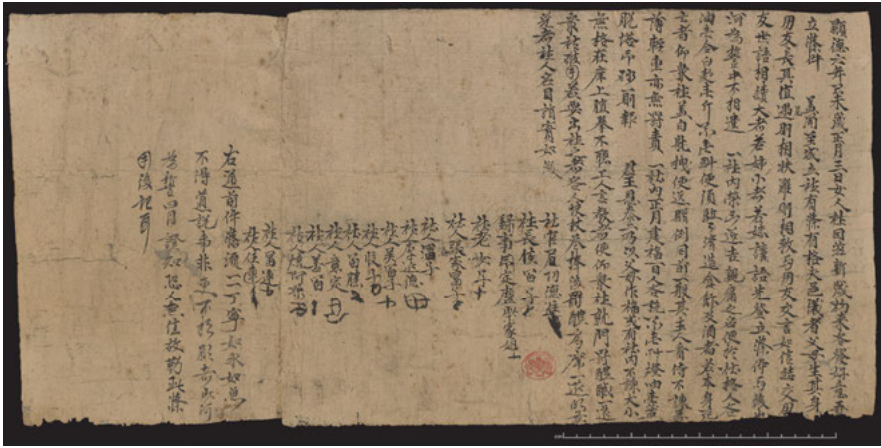 顯德六年己未歲正月三日女人社因茲新歲初來各發好意再
立條件 蓋聞至誠立社有條有格夫邑儀者父母生其身
朋友長其值遇危則相扶難則相救与朋友交言如信結交朋
友世語相續大者若姉小者若妹讓語先登立條件与後山
河為誓中不相違 一社內榮凶逐吉親痛之名便於社格人各
油壹合白麵壹斤粟壹斗便須驅驅濟造食飯及酒者若本身死
亡者仰眾社蓋白耽拽便送贈例同前一般其主人看侍不諫厚
薄輕重亦無罰責 一社內正月建福一日人各稅粟壹斗燈油壹盞
脫塔印砂一則報 君王恩泰二乃以父母作福或有社內不諫大小
無格在席上喧拳不聽上人言教者便仰眾社就門罰醴膩一筵
眾社破用若要出社之者各人決杖叁棒後罰醴局席一筵的無
免者社人名目詣實如後
社官尼功德進
社長侯富子
錄事印定磨柴家娘
社老女子
社人張家富子
社人渦子
社人李延德
社人吳富子
社人段子
社人富勝
社人意定
社人善富
社人燒阿朵
社人富連
社人住連
右通前件條流一一丁寧如水如魚
不得道說事非更不於願者山河
為誓日月證知恐人無信故勒此條
用後記耳